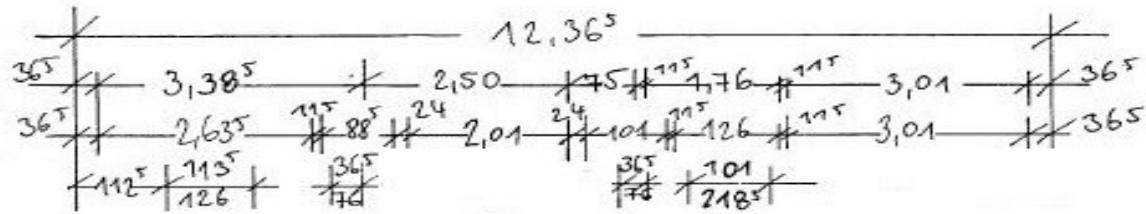 12,36⁵
36⁵ 3,38⁵ 2,50 75 11⁵ 1,76 11⁵ 3,01 36⁵
36⁵ 2,63⁵ 11⁵ 88⁵ 24 2,01 24 101 11⁵ 126 11⁵ 3,01 36⁵
112⁵ 113⁵ 36⁵ 36⁵ 101
126 76 76 218⁵